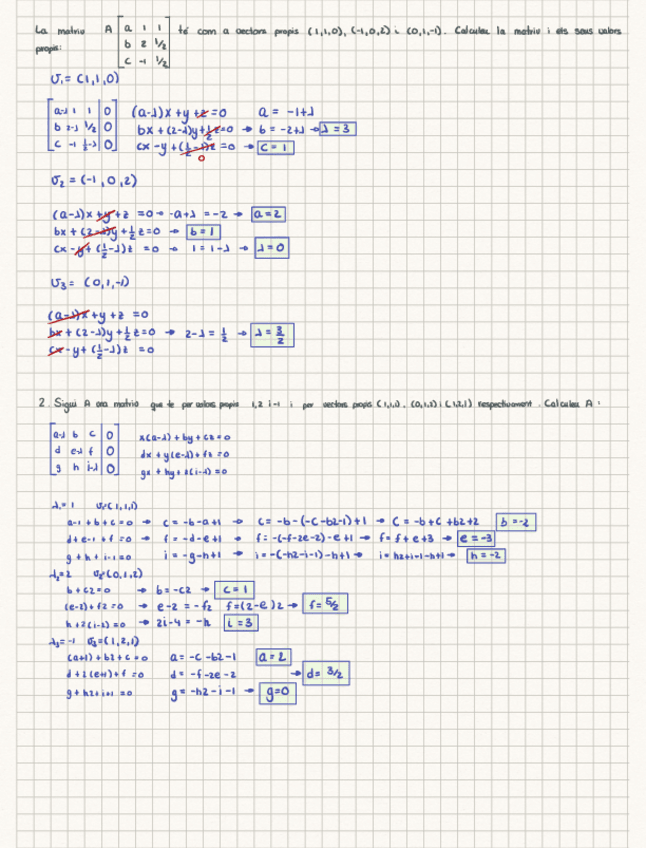 La matriu A [a 1 1
b 2 1/2
c -1 1/2] té com a vectors propis (1,1,0), (-1,0,2) i (0,1,-1). Calculeu la matriu i els seus valors
propis:
v₁ = (1,1,0)
a-λ 1 1 | 0 (a-λ)x + y + z = 0 a = -1+λ
b 2-λ 1/2 | 0 bx + (2-λ)y + 1/2 z = 0 → b = -2+λ → λ = 3
c -1 1/2-λ | 0 cx - y + (1/2-λ)z = 0 → c = 1
0
v₂ = (-1, 0, 2)
(a-λ)x + y + z = 0 → -a+λ = -2 → a = 2
bx + (2-λ)y + 1/2 z = 0 → b = 1
cx - y + (1/2-λ)z = 0 → 1 = 1-λ → λ = 0
v₃ = (0,1,-1)
(a-λ)x + y + z = 0
bx + (2-λ)y + 1/2 z = 0 → 2-λ = 1/2 → λ = 3/2
cx - y + (1/2-λ)z = 0
2. Sigui A una matriu que té per valors propis 1,2 i -1 i per vectors propis (1,1,1), (0,1,2) i (1,2,1) respectivament. Calculeu A:
a-λ b c | 0 x(a-λ) + by + cz = 0
d e-λ f | 0 dx + y(e-λ) + fz = 0
g h i-λ | 0 gx + hy + z(i-λ) = 0
λ₁ = 1 v₁(1,1,1)
a-1+b+c = 0 → c = -b-a+1 → c = -b-(-c-b2-1)+1 → c = -b+c+b2+2 b = -2
d+e-1+f = 0 → f = -d-e+1 → f = -(-f-2e-2)-e+1 → f = f+e+3 → e = -3
g+h+i-1 = 0 → i = -g-h+1 → i = -(-h2-i-1)-h+1 → i = h2+i+1-h+1 → h = -2
λ₂ = 2 v₂(0,1,2)
b+c2 = 0 → b = -c2 → c = 1
(e-2)+f2 = 0 → e-2 = -f2 f = (2-e)2 → f = 5/2
h+2(i-2) = 0 → 2i-4 = -h i = 3
λ₃ = -1 v₃ = (1,2,1)
(a+1)+b2+c = 0 a = -c-b2-1 a = 2
d+2(e+1)+f = 0 d = -f-2e-2 → d = 3/2
g+h2+i+1 = 0 g = -h2-i-1 → g = 0